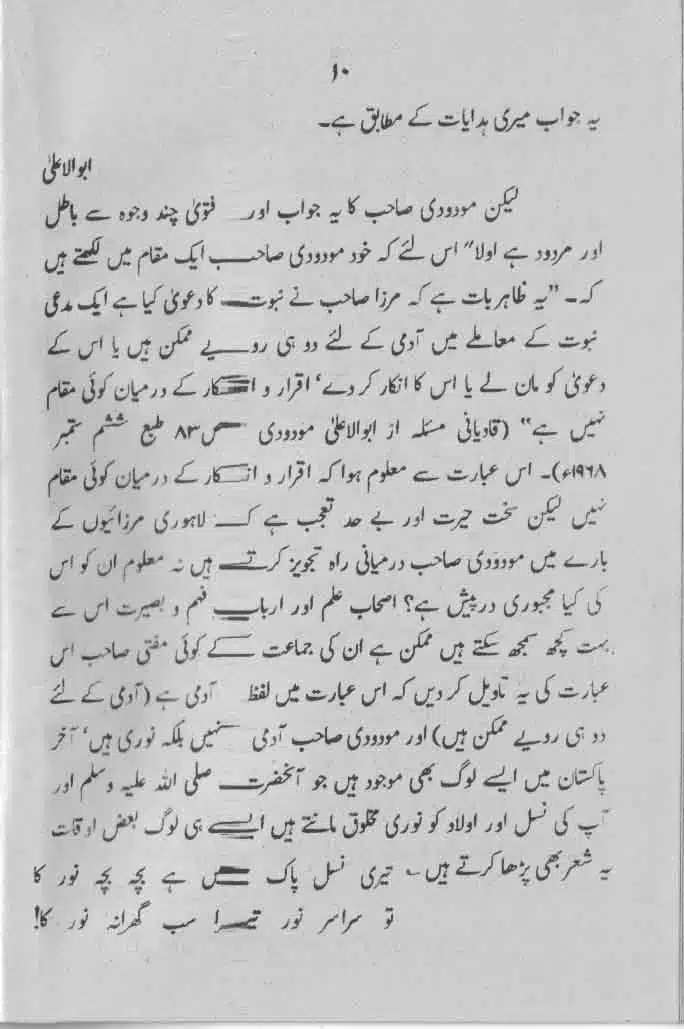 ۱۰
یہ جواب میری ہدایات کے مطابق ہے۔
ابوالاعلیٰ
لیکن مودودی صاحب کا یہ جواب اور فتویٰ چند وجوہ سے باطل
اور مردود ہے اولا" اس لئے کہ خود مودودی صاحب ایک مقام میں لکھتے ہیں
کہ۔ "یہ ظاہر بات ہے کہ مرزا صاحب نے نبوت کا دعویٰ کیا ہے ایک مدعی
نبوت کے معاملے میں آدمی کے لئے دو ہی رویے ممکن ہیں یا اس کے
دعویٰ کو مان لے یا اس کا انکار کر دے' اقرار و انکار کے درمیان کوئی مقام
نہیں ہے" (قادیانی مسئلہ از ابوالاعلیٰ مودودی ص۸۳ طبع ششم ستمبر
۱۹۶۸ء)۔ اس عبارت سے معلوم ہوا کہ اقرار و انکار کے درمیان کوئی مقام
نہیں لیکن سخت حیرت اور بے حد تعجب ہے کہ لاہوری مرزائیوں کے
بارے میں مودودی صاحب درمیانی راہ تجویز کرتے ہیں نہ معلوم ان کو اس
کی کیا مجبوری درپیش ہے؟ اصحاب علم اور ارباب فہم و بصیرت اس سے
بہت کچھ سمجھ سکتے ہیں ممکن ہے ان کی جماعت کے کوئی مفتی صاحب اس
عبارت کی یہ تاویل کر دیں کہ اس عبارت میں لفظ آدمی ہے (آدمی کے لئے
دو ہی رویے ممکن ہیں) اور مودودی صاحب آدمی نہیں بلکہ نوری ہیں' آخر
پاکستان میں ایسے لوگ بھی موجود ہیں جو آنحضرت صلی اللہ علیہ وسلم اور
آپ کی نسل اور اولاد کو نوری مخلوق مانتے ہیں ایسے ہی لوگ بعض اوقات
یہ شعر بھی پڑھا کرتے ہیں؎ تیری نسل پاک میں ہے بچہ بچہ نور کا
تو سراسر نور تیرا سب گھرانہ نور کا!